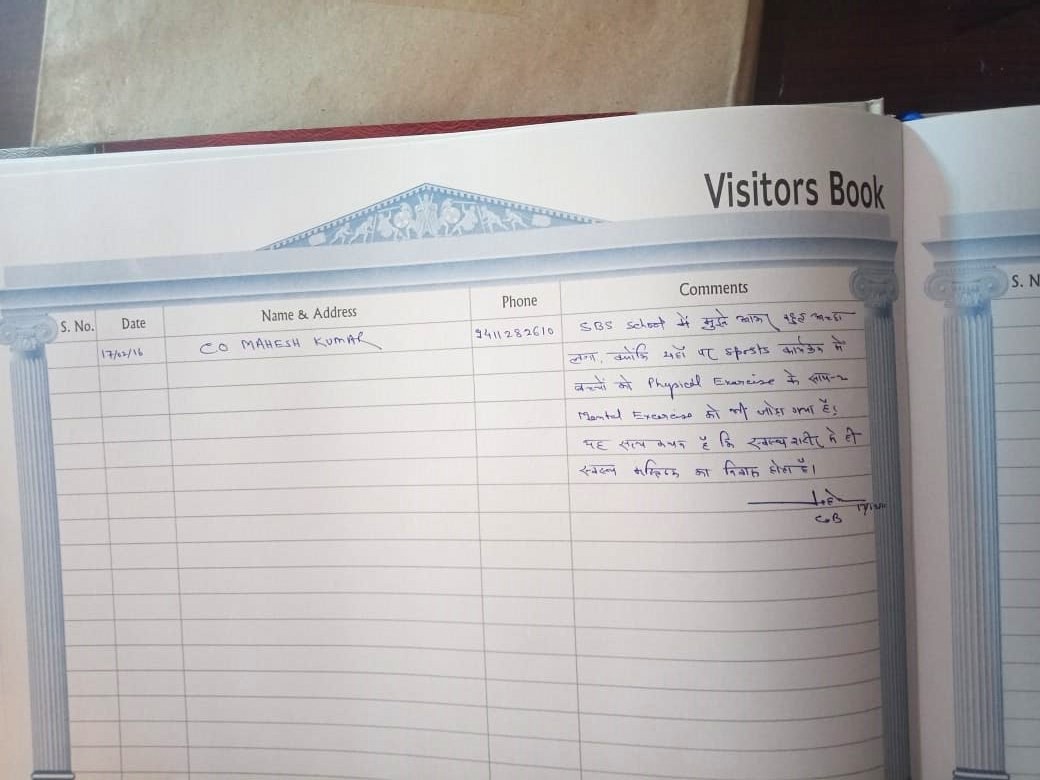 Visitors Book
S. No. Date Name & Address Phone Comments
S. N
17/02/16 CO MAHESH KUMAR 9411282610 SBS School में मुझे आकर बहुत अच्छा
लगा, क्योंकि यहाँ पर sports कार्यक्रम में
बच्चों को Physical Exercise के साथ-२
Mental Excercise को भी जोड़ा गया है।
यह सत्य कथन है कि स्वस्थ शरीर में ही
स्वस्थ मस्तिष्क का निवास होता है।